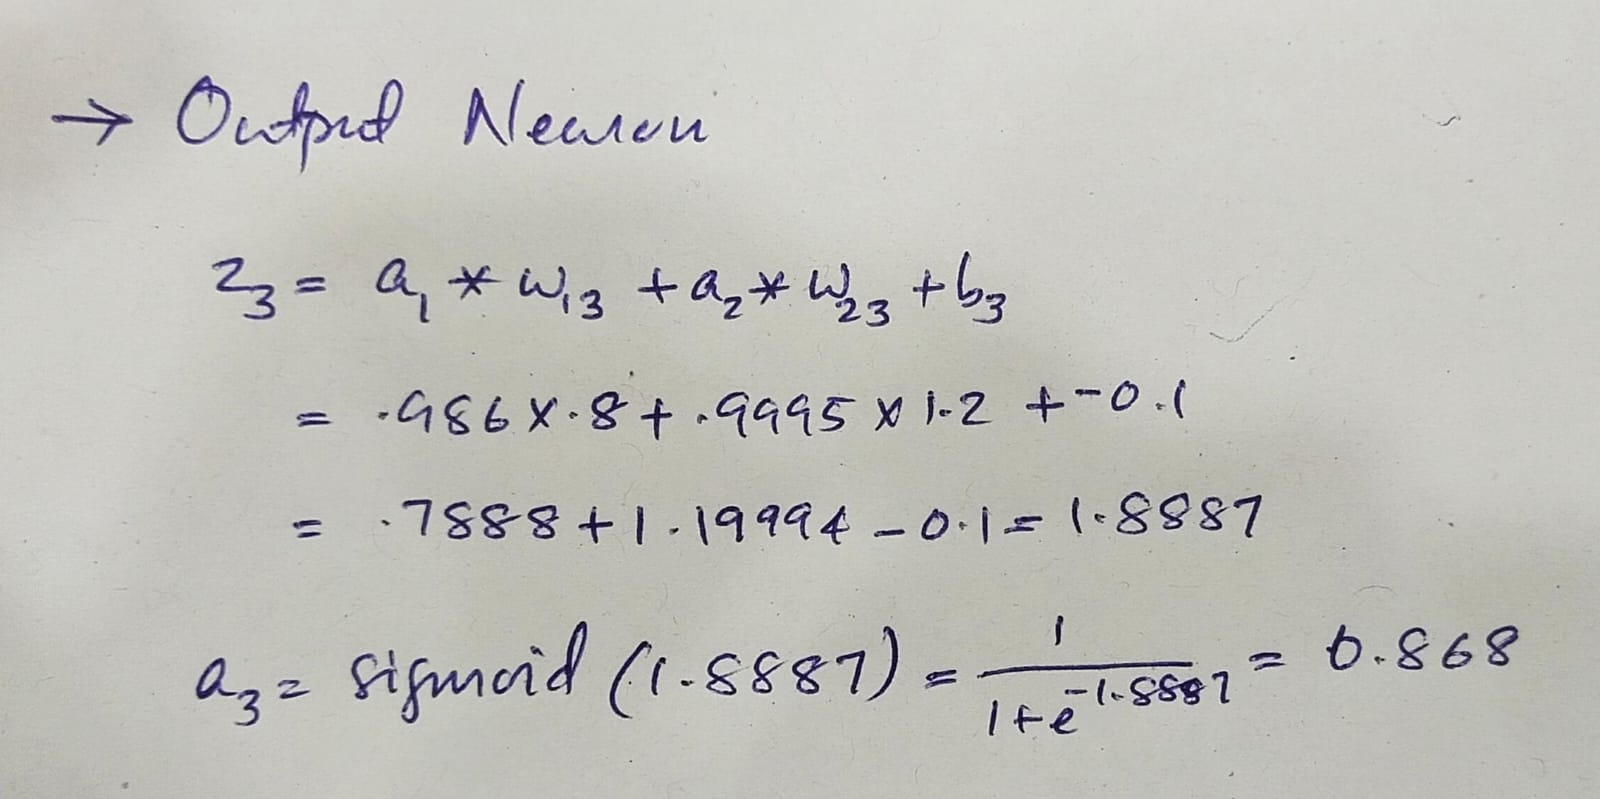 → Output Neuron
z₃ = a₁ * w₁₃ + a₂ * w₂₃ + b₃
= .986 × .8 + .9995 × 1.2 + -0.1
= .7888 + 1.19994 - 0.1 = 1.8887
a₃ = sigmoid (1.8887) = 1 / (1 + e^-1.8887) = 0.868